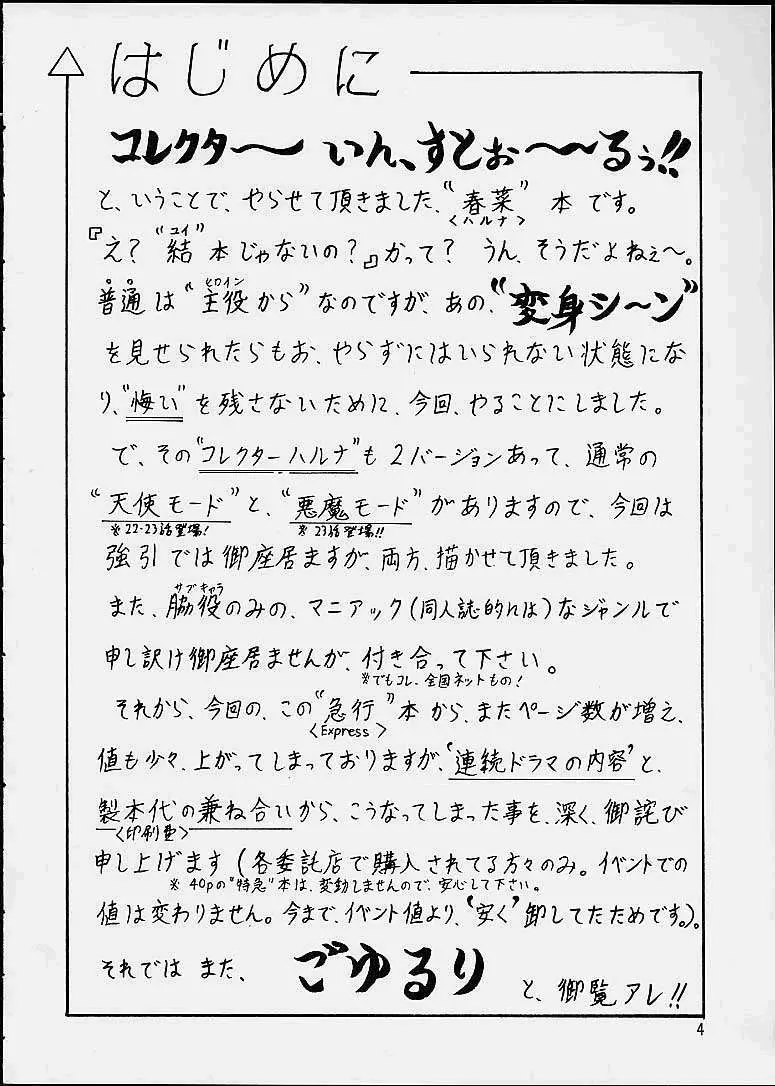 はじめに
コレクター〜 いん、すとぉ〜〜るぅ!!
と、いうことで、やらせて頂きました、“春菜” 本です。
<ハルナ>
ユイ
『え? “結” 本じゃないの?』かって? うん、そうだよねぇ〜。
ヒロイン
普通は “主役から” なのですが、あの、“変身シ〜ン”
を見せられたらもお、やらずにはいられない状態にな
り、“悔い” を残さないために、今回、やることにしました。
で、その “コレクターハルナ” も 2バージョンあって、通常の
“天使モード” と、“悪魔モード” がありますので、今回は
※22・23話登場! ※23話登場!!
強引では御座居ますが、両方、描かせて頂きました。
サブキャラ
また、脇役のみの、マニアック(同人誌的には)なジャンルで
申し訳け御座居ませんが、付き合って下さい。
※でもコレ、全国ネットもの!
それから、今回の、この “急行” 本から、またページ数が増え、
<Express>
値も少々、上がってしまっておりますが、‘連続ドラマの内容’と、
製本代の兼ね合いから、こうなってしまった事を、深く、御詫び
<印刷費>
申し上げます(各委託店で購入されてる方々のみ。イベントでの
※ 40pの“特急”本は、変動しませんので、安心して下さい。
値は変わりません。今まで、イベント値より、‘安く’卸してたためです。)。
それでは また、 ごゆるり と、御覧アレ!!
4